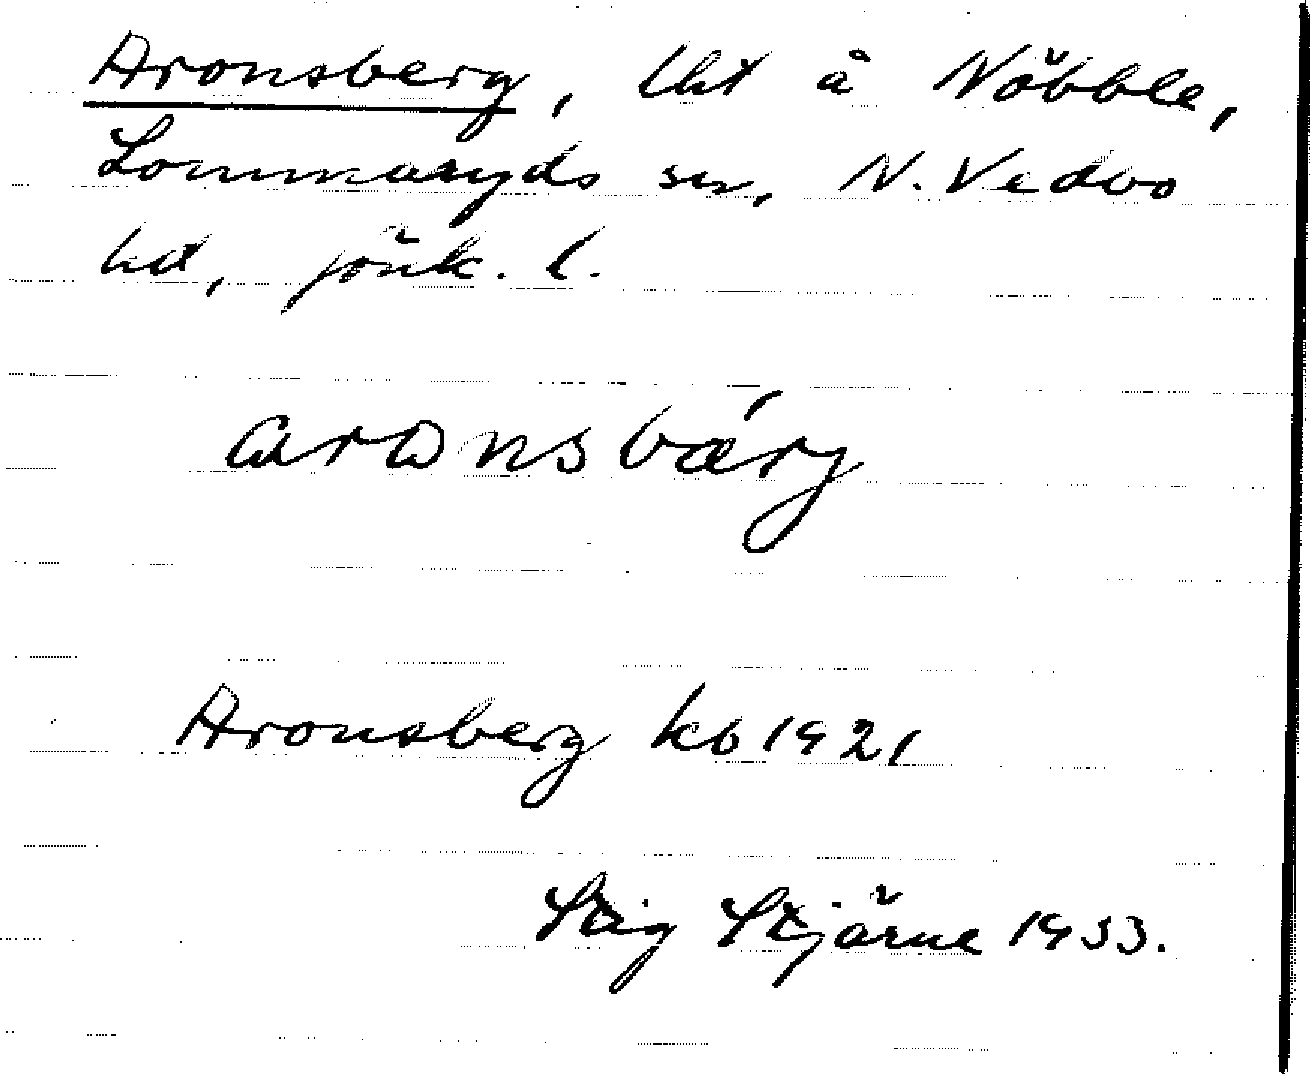 Aronsberg, lht å Nöbble,
Lommaryds sn, N. Vedbo
hd, jönk. l.
arωnsbærj
Aronsberg kb 1921
Stig Stjärne 1933.